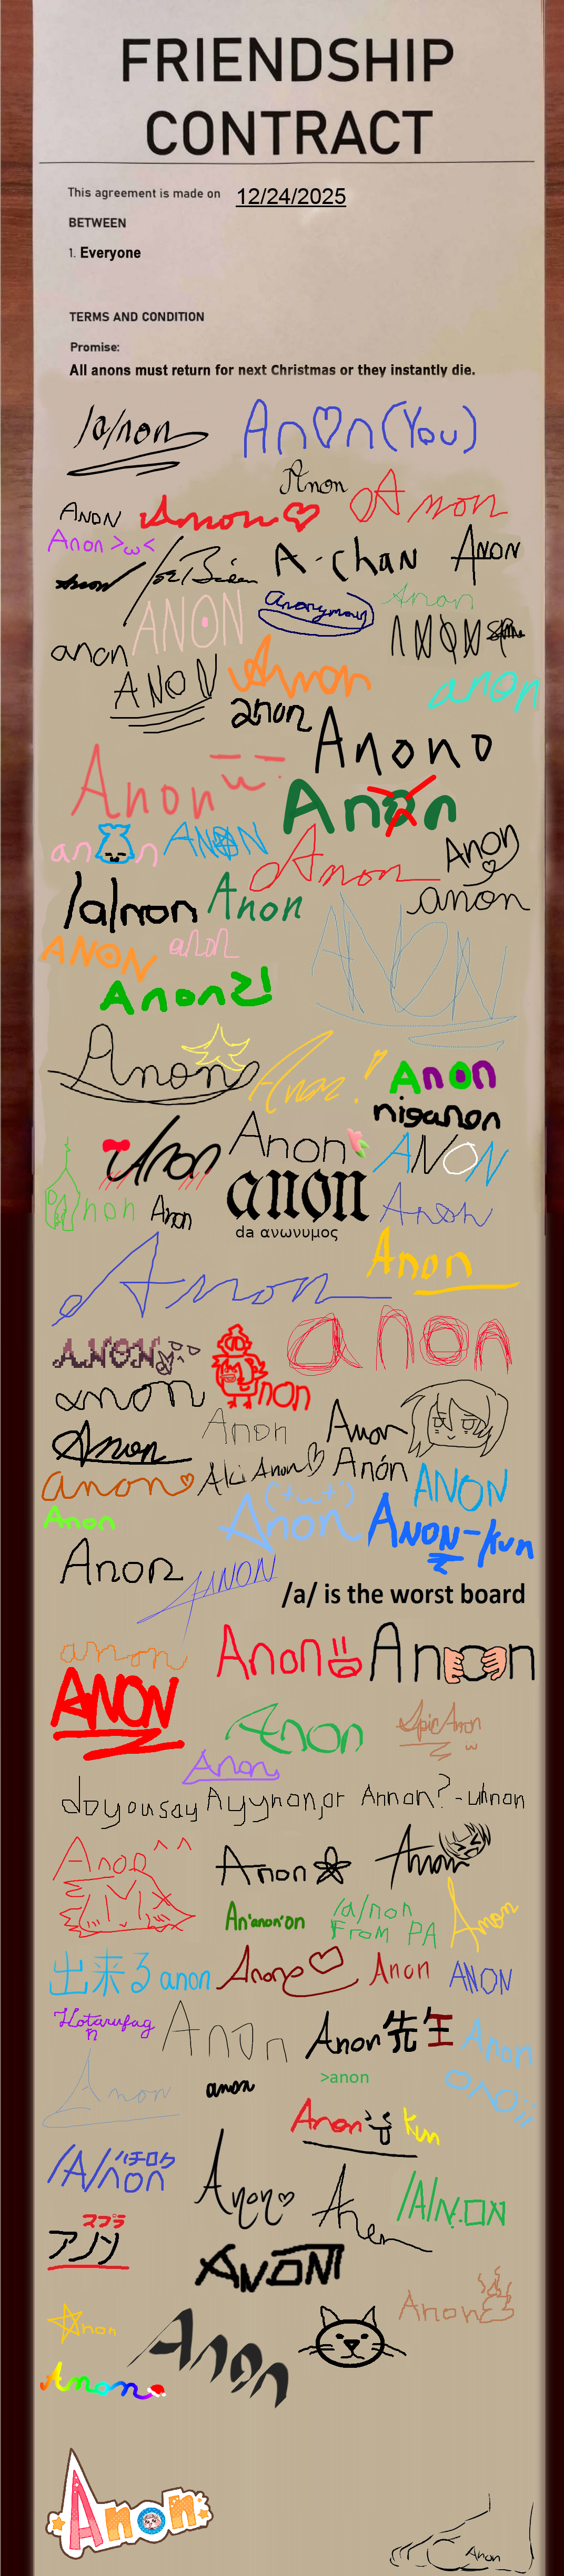 FRIENDSHIP
CONTRACT
This agreement is made on 12/24/2025
BETWEEN
1. Everyone
TERMS AND CONDITION
Promise:
All anons must return for next Christmas or they instantly die.
/a/non
An♡n(You)
Anon
Anon
Anon♡
Anon
Anon >ω<
Anon
Joe Biden
A-chan
Anon
Anonymous
Anon
ANON
ANON
anon
ANON
Anon
anon
anon
Anono
Anon
Anon
anon
ANON
Anon
Anon
/a/non
Anon
anon
ANON
anon
ANON
Anon2!
Anon
Anon!!
Anon
niganon
Anon
Anon
ANON
anon
Anon
Anon
anon
da ανωνυμος
Anon
Anon
Anon
ANON
non
anon
anon
Anon
Anon
Anon
Aki Anon♡
Anón
anon♡
ANON
Anon
Anon
('+ω+')
Anon-kun
Anon
ANON
/a/ is the worst board
anon
Anon
Anon
ANON
Anon
EpicAnon
ω
Anon
do you say Ayynon, or Annon? - uhnon
Anon^^
Anon
Anon
An'anon'on
/a/non
From PA
Anon
出来る anon
Anon
Anon
ANON
Hotarufag
n
Anon
Anon先生
Anon
Anon
anon
>anon
Anon kun
/A/non
ハチロク
Anon♡
Anon
/A/N.ON
マブラ
アノン
ANON
Anon
Anon
Anon
Anon
Anon
Anon